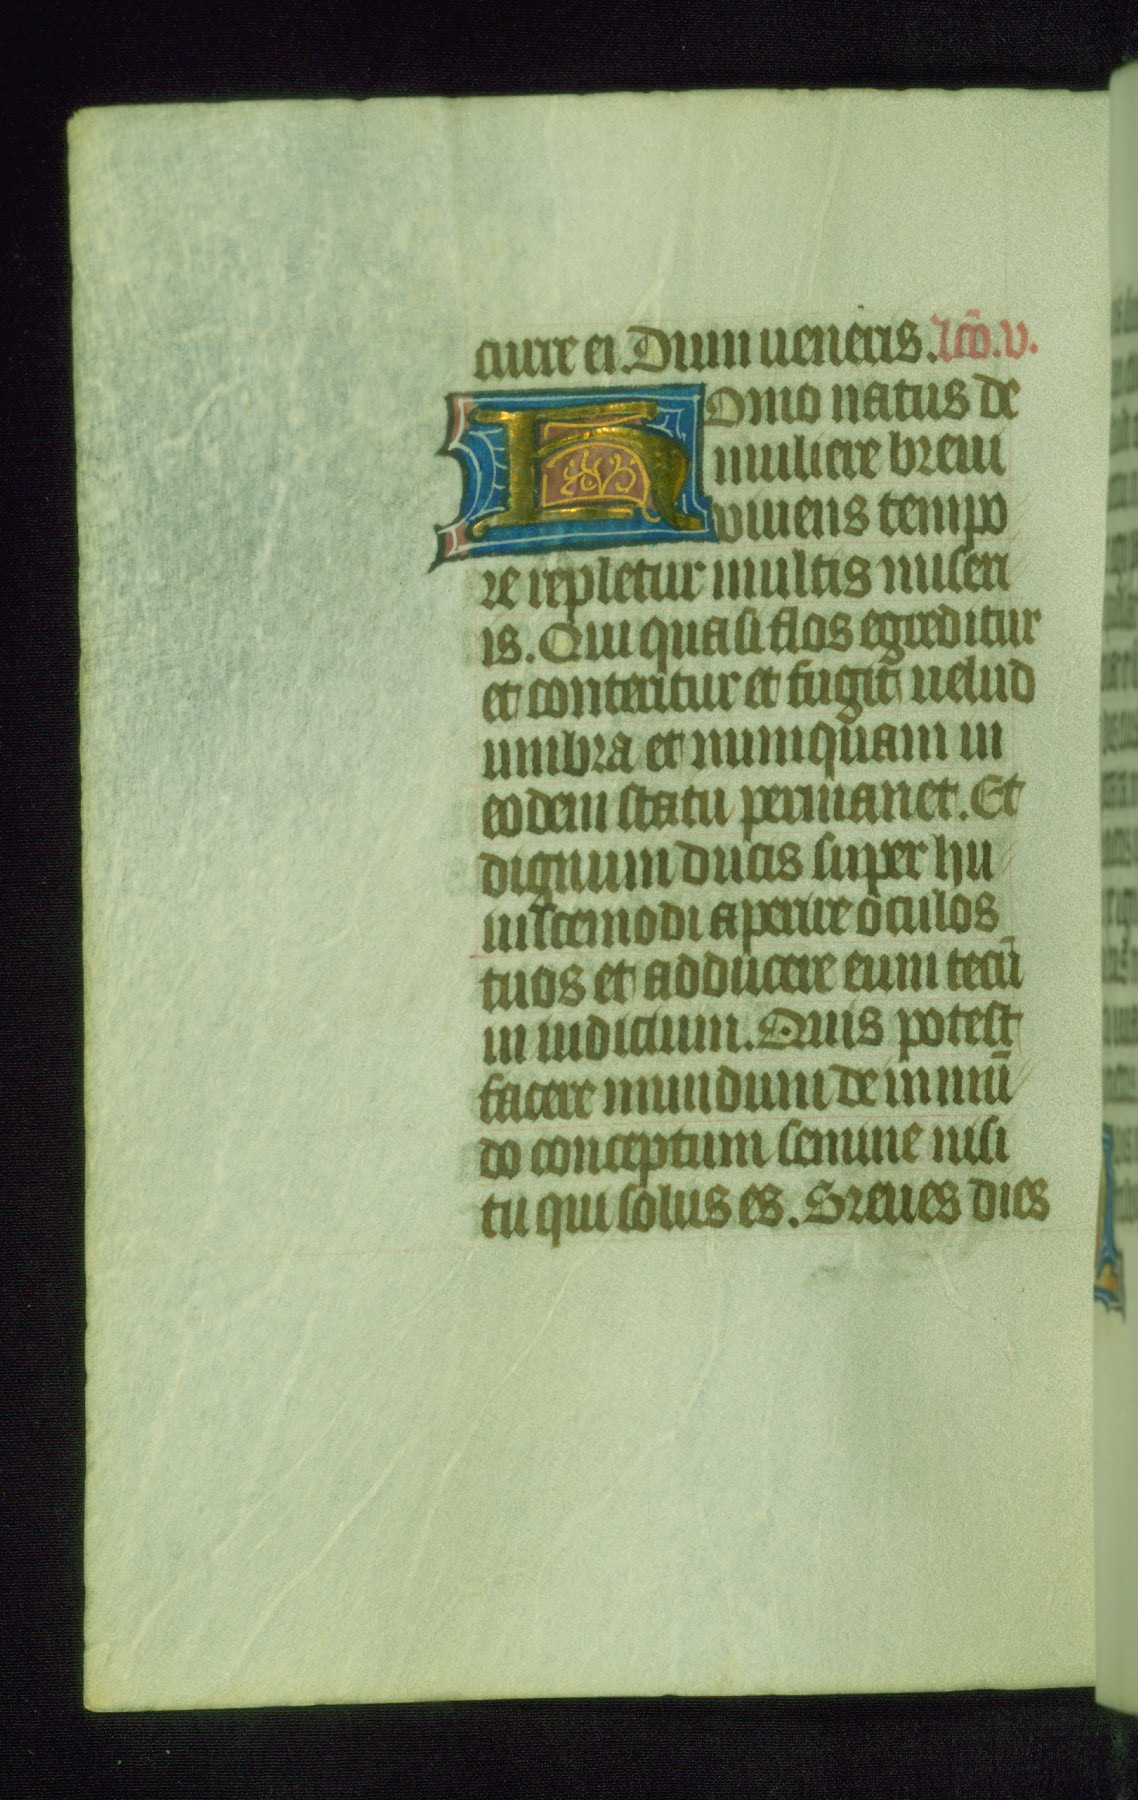 cuire ei. Dum ueneris. lc̄o. v.
Homo natus de
muliere breui
viuens tempo
re repletur multis miseri
is. Qui quasi flos egreditur
et conteritur et fugit uelud
umbra et numquam in
eodem statu permanet. Et
dignum ducis super hu
iuscemodi aperire oculos
tuos et adducere eum tecū
in iudicium. Quis potest
facere mundum de inmū
do conceptum semine nisi
tu qui solus es. Breues dies